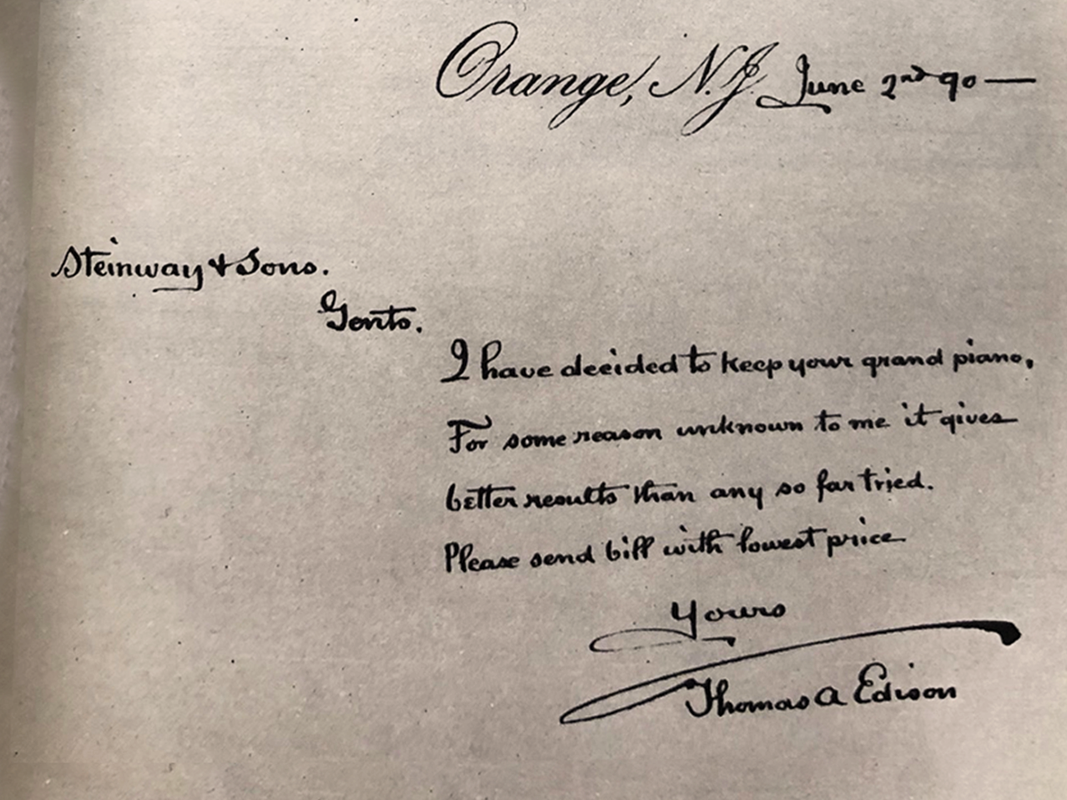 Orange, N.J. June 2nd 90—
Steinway & Sons.
Gents.
I have decided to keep your grand piano,
For some reason unknown to me it gives
better results than any so far tried.
Please send bill with lowest price
Yours
Thomas A Edison